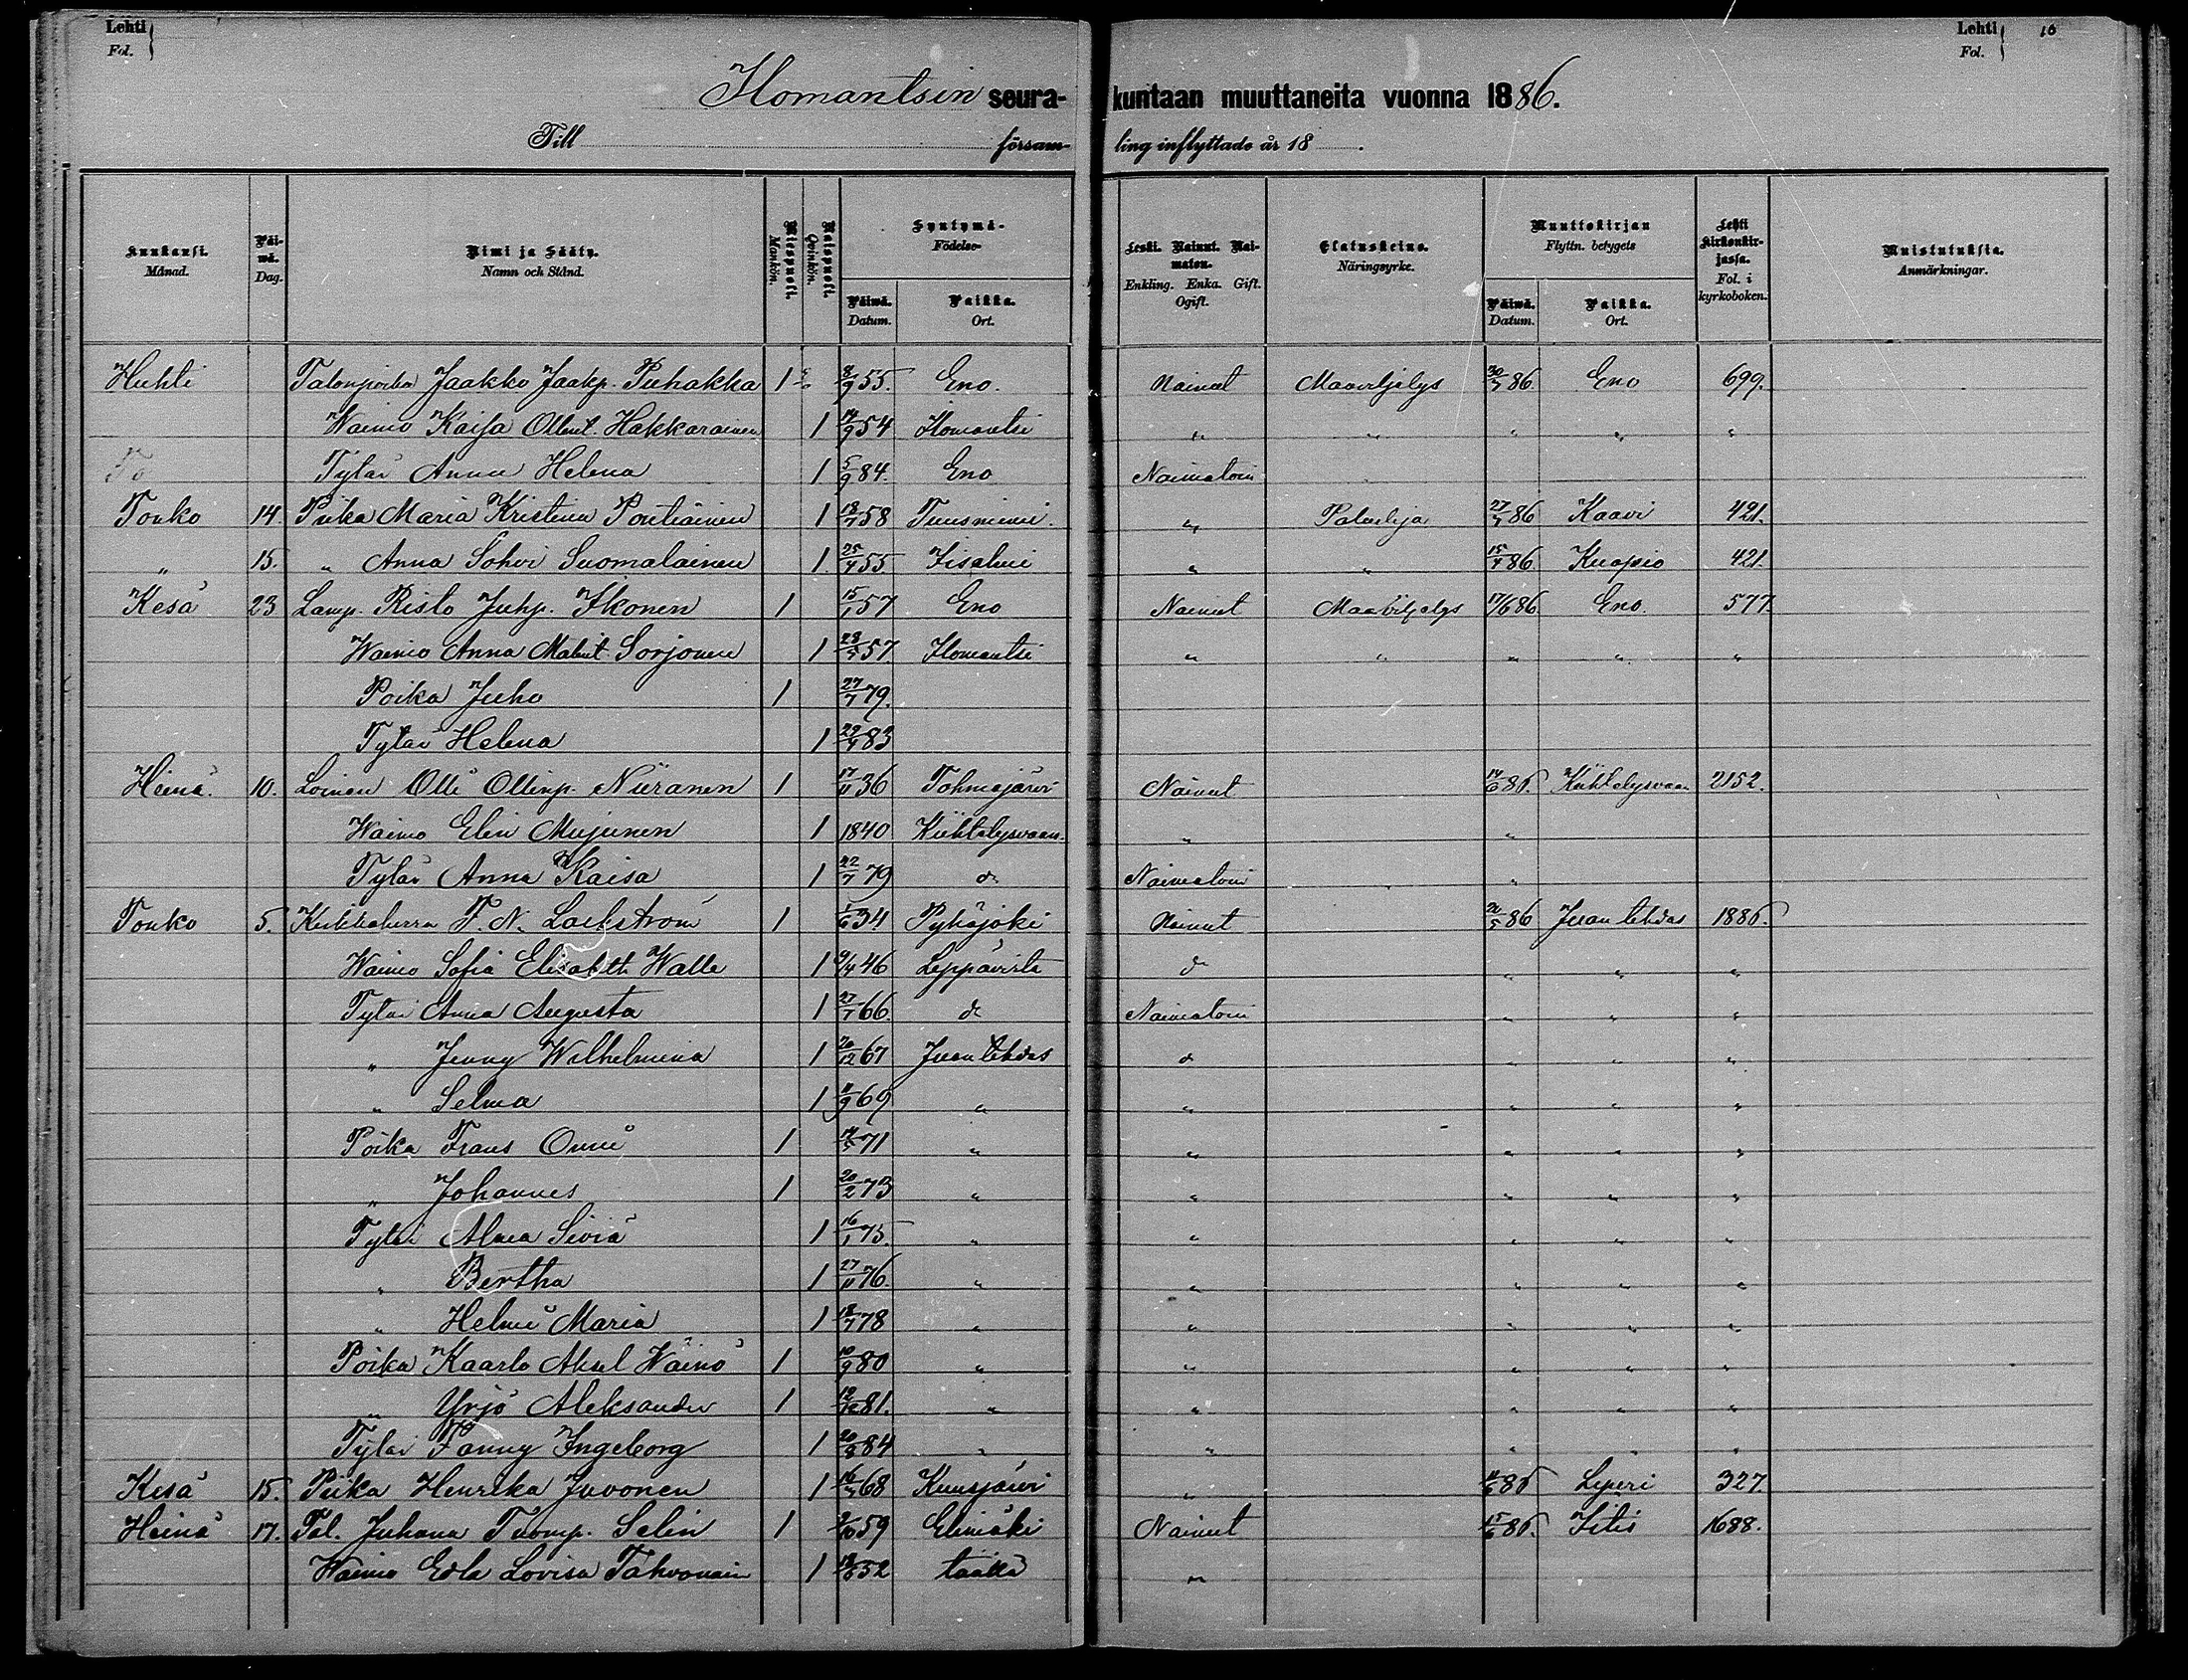 Lehti Fol. Lehti Fol. 10
Ilomantsin seura- kuntaan muuttaneita vuonna 1886.
Till församling inflyttade år 18 .
Kuukausi. Månad. Päiwä. Dag. Nimi ja Sääty. Namn och Stånd. Miespuoli. Mankön. Naispuoli. Qvinkön. Syntymä- Födelse- Päiwä. Datum. Paikka. Ort. Leski. Nainut. Naimaton. Enkling. Enka. Gift. Ogift. Elatuskeino. Näringsyrke. Muuttokirjan Flyttn. betygets Päiwä. Datum. Paikka. Ort. Lehti Kirkonkirjassa. Fol. i kyrkoboken. Muistutuksia. Anmärkningar.
Huhti Talonpoika Jaakko Jaakp. Puhakka 1 8/9 55. Eno. Nainut Maaviljelys 30/3 86 Eno 699.
Waimo Kaisa Ollint. Hakkarainen 1 14/9 54 Ilomantsi " " " " "
To Tytär Anna Helena 1 5/9 84. Eno Naimatoin
Touko 14. Piika Maria Kristina Pontiainen 1 18/7 58 Tuusniemi. " Palvelija 27/4 86 Kaavi 421.
" 15. " Anna Sohvi Suomalainen 1. 25/4 55. Iisalmi " " 15/4 86 Kuopio 421.
Kesä 23 Lamp. Risto Juhp. Ikonen 1 15/1 57 Eno Nainut Maaviljelys 17/6 86 Eno. 577.
Waimo Anna Matint. Sorjonen 1 28/5 57. Ilomantsi " " " " "
Poika Juho 1 27/7 79.
Tytär Helena 1 29/4 83
Heinä. 10. Loinen Olli Ollinp. Niiranen 1 17/11 36 Tohmajärvi Nainut 14/6 86. Kiihtelysvaara 2152.
Waimo Elin Mujunen 1 1840 Kiihtelysvaara. " "
Tytär Anna Kaisa 1 22/7 79 do Naimatoin "
Touko 5. Kirkkoherra F. N. Lackström 1 1/6 34 Pyhäjoki Nainut 20/5 86 Juantehdas 1886.
Waimo Sofia Elisabeth Walle 1 9/4 46 Leppävirta do " " "
Tytär Anna Augusta 1 27/7 66. do Naimatoin " " "
" Jenny Wilhelmina 1 20/12 67 Juantehdas do " " "
" Selma 1 11/9 69 " " " " "
Poika Frans Onni 1 14/5 71 " " " " "
" Johannes 1 20/2 73 " " " " "
Tytär Alma Siviä 1 16/1 75. " " " " "
" Bertha 1 27/11 76. " " " " "
" Helmi Maria 1 18/7 78 " " " " "
Poika Kaarlo Aksel Wäinö 1 10/9 80 " " " " "
" Yrjö Aleksander 1 12/12 81. " " " " "
Tytär Fanny Ingeborg 1 20/8 84 " " " " "
Kesä 15. Piika Henrika Juvonen 1 16/4 68 Kuusjärvi " 11/6 86 Liperi 327
Heinä 17. Tal. Juhana Tuomp. Selin 1 2/10 59 Elimäki Nainut 15/6 86. Iitis 1688.
Waimo Edla Lovisa Tahvonain 1 18/6 52 täällä "